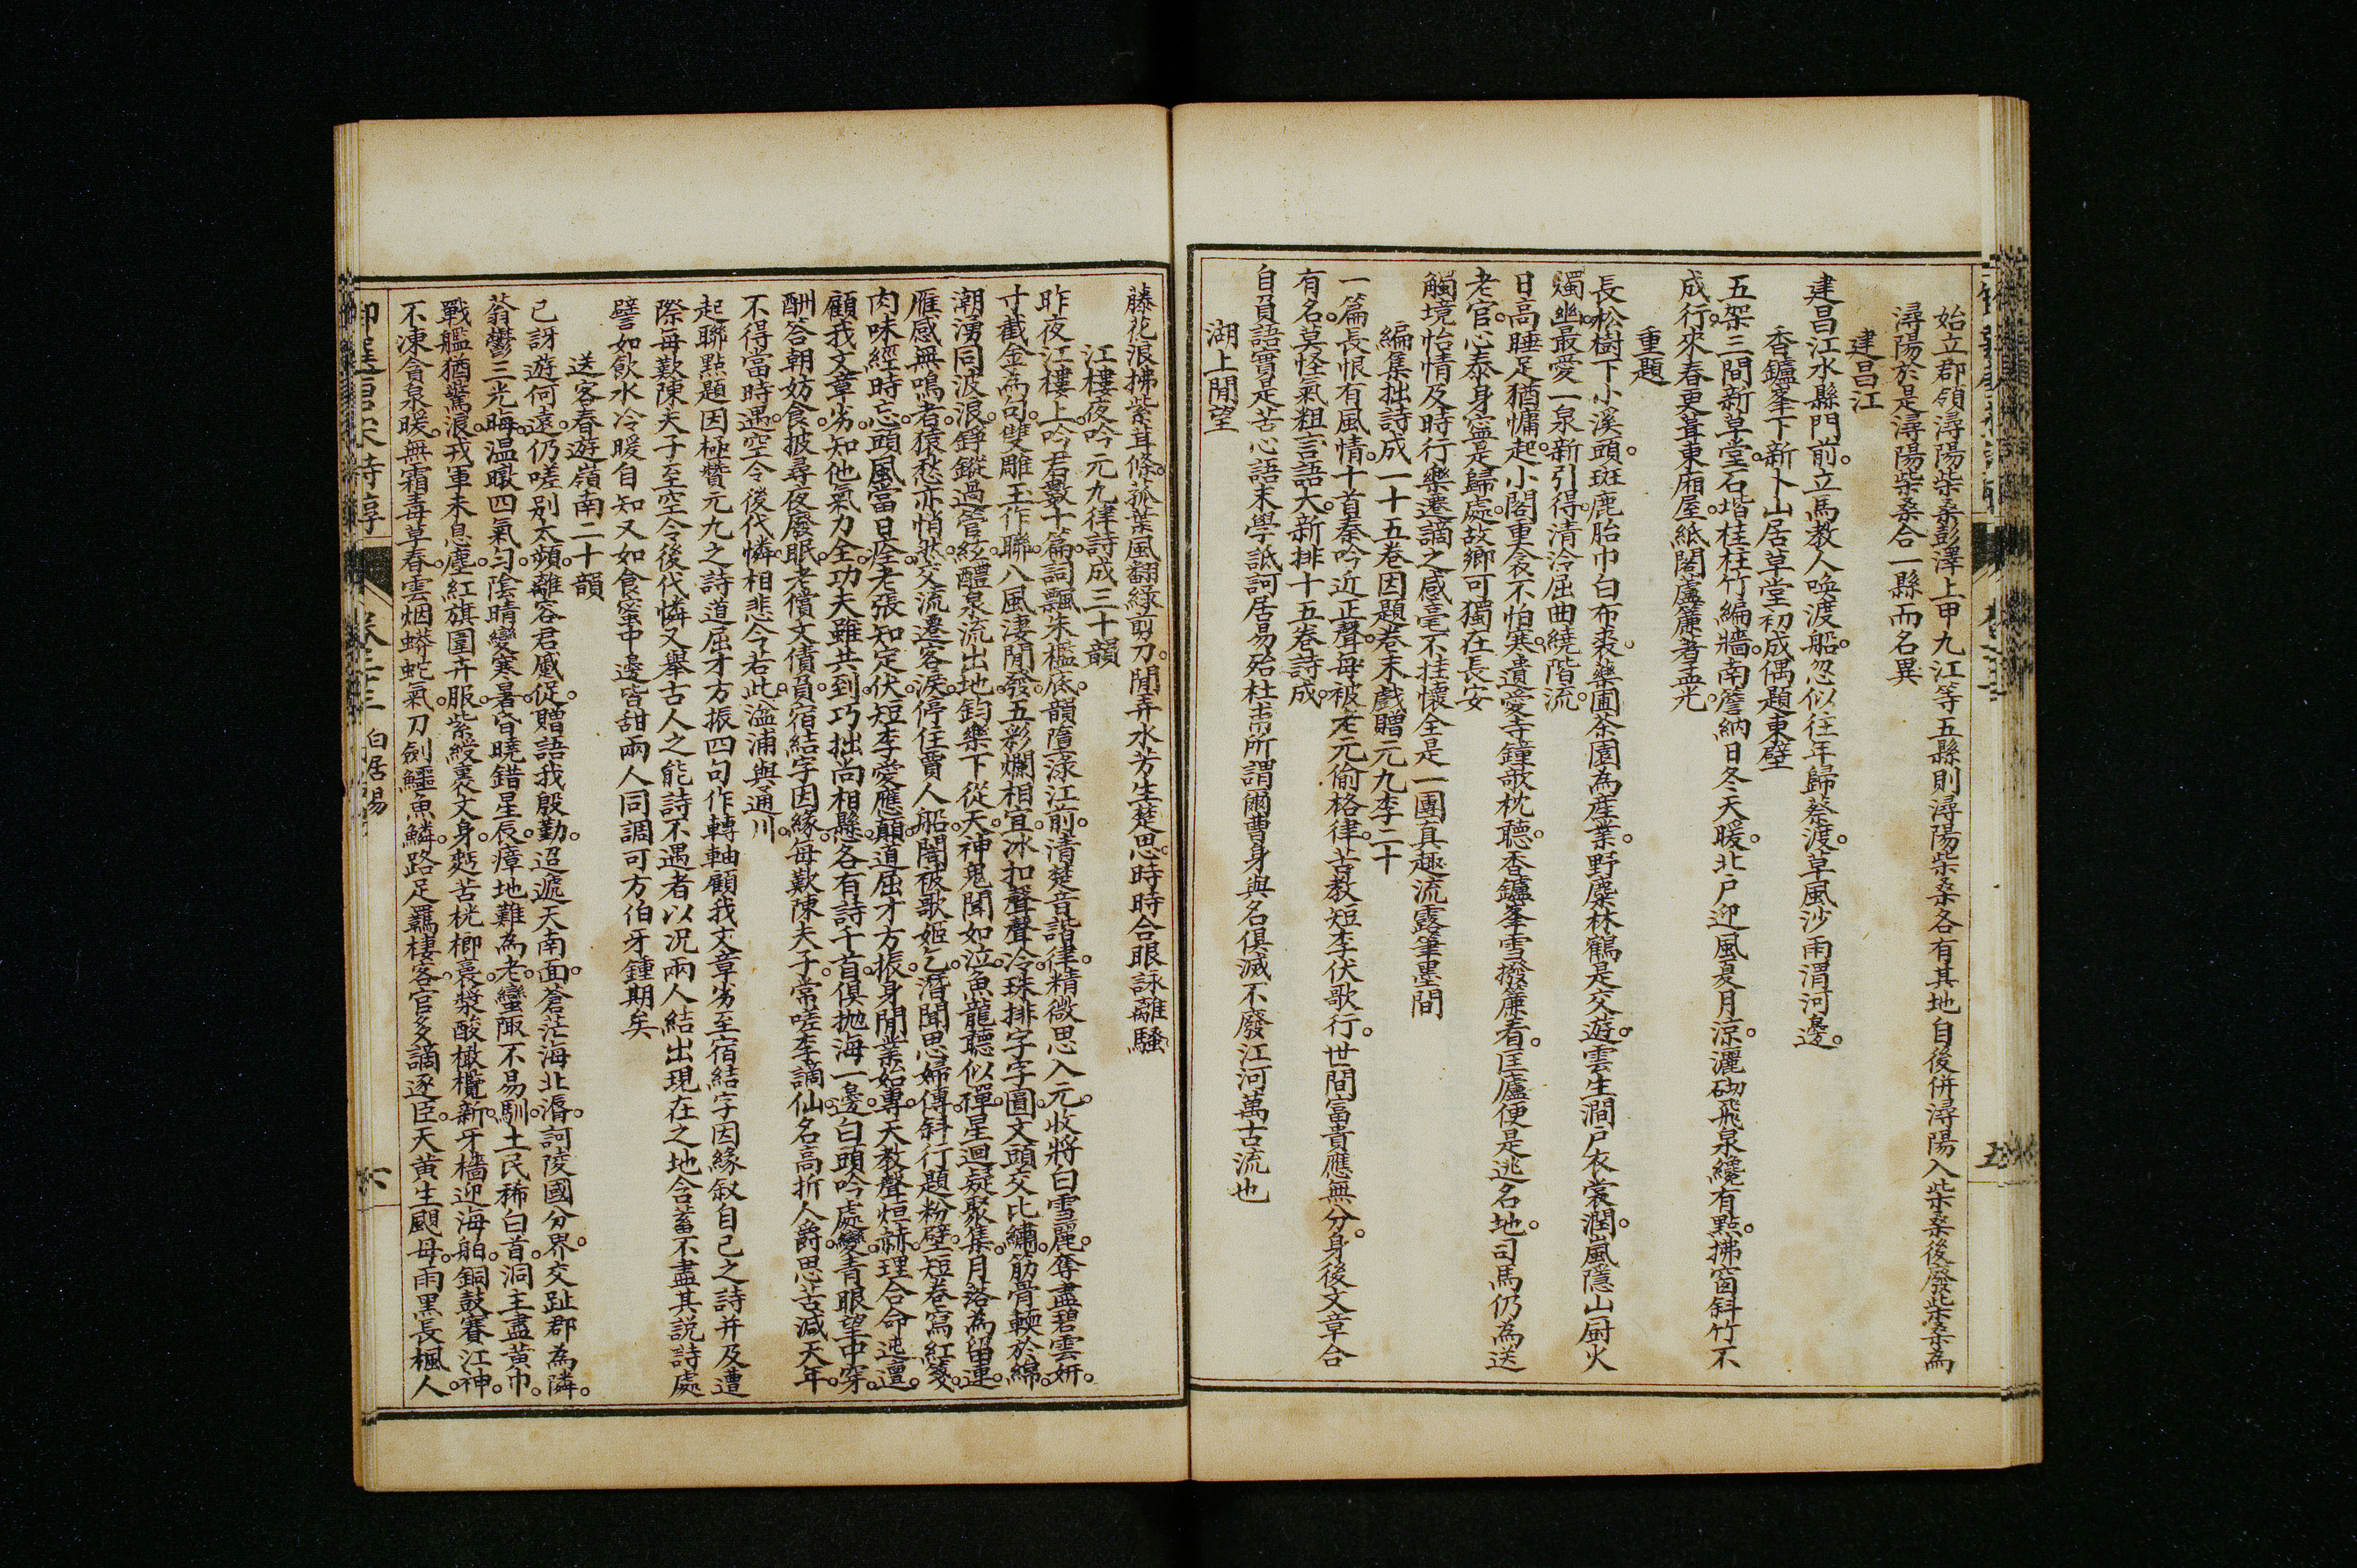 始立郡領潯陽柴桑彭澤上甲九江等五縣則潯陽柴桑各有其地自後併潯陽入柴桑後廢柴桑為
潯陽於是潯陽柴桑合一縣而名異
建昌江
建昌江水縣門前。立馬教人喚渡船。忽似往年歸蔡渡。草風沙雨渭河邊。
香鑪峯下新卜山居草堂初成偶題東壁
五架三間新草堂。石堦桂柱竹編牆。南簷納日冬天暖。北戶迎風夏月涼。灑砌飛泉纔有點。拂窗斜竹不
成行。來春更葺東廂屋。紙閣蘆簾著孟光。
重題
長松樹下小溪頭。斑鹿胎巾白布裘。藥圃茶園為產業。野麋林鶴是交遊。雲生澗戶衣裳潤。嵐隱山厨火
燭幽。最愛一泉新引得。清泠屈曲繞階流。
日高睡足猶慵起。小閣重衾不怕寒。遺愛寺鐘欹枕聽。香鑪峯雪撥簾看。匡廬便是逃名地。司馬仍為送
老官。心泰身寧是歸處。故鄉可獨在長安
觸境怡情及時行樂遷謫之感毫不挂懷全是一團真趣流露筆墨間
編集拙詩成一十五卷因題卷末戲贈元九李二十
一篇長恨有風情。十首秦吟近正聲。每被老元偷格律。苦教短李伏歌行。世間富貴應無分。身後文章合
有名。莫怪氣粗言語大。新排十五卷詩成。
自負語實是苦心語末學詆訶居易殆杜甫所謂爾曹身與名俱滅不廢江河萬古流也
湖上閒望
藤花浪拂紫茸條。菰葉風翻綠剪刀。閒弄水芳生楚思。時時合眼詠離騷。
江樓夜吟元九律詩成三十韻
昨夜江樓上。吟君數十篇。詞飄朱檻底。韻墮淥江前。清楚音諧律。精微思入元。收將白雪麗。奪盡碧雲妍。
寸截金為句。雙雕玉作聯。八風淒間發。五彩爛相宣。冰扣聲聲冷。珠排字字圓。文頭交比繡。筋骨軟於綿。
潮湧同波浪。錚鏦過管絃。醴泉流出地。鈞樂下從天。神鬼聞如泣。魚龍聽似禪。星迴疑聚集。月落為留連。
雁感無鳴者。猿愁亦悄然。交流遷客淚。停住賈人船。闇被歌姬乞。潛聞思婦傳。斜行題粉壁。短卷寫紅箋。
肉味經時忘。頭風當日痊。老張知定伏。短李愛應顛。道屈才方振。身閒業始專。天教聲烜赫。理合命迍邅。
顧我文章劣。知他氣力全。功夫雖共到。巧拙尚相懸。各有詩千首。俱拋海一邊。白頭吟處變。青眼望中穿。
酬答朝妨食。披尋夜廢眠。老償文債負。宿結字因緣。每歎陳夫子。常嗟李謫仙。名高折人爵。思苦減天年。
不得當時遇。空令後代憐。相悲今若此。湓浦與通川。
起聯點題因極贊元九之詩道屈才方振四句作轉軸顧我文章劣至宿結字因緣叙自己之詩并及遭
際每歎陳夫子至空令後代憐又舉古人之能詩不遇者以況兩人結出現在之地含蓄不盡其說詩處
譬如飲水冷暖自知又如食蜜中邊皆甜兩人同調可方伯牙鍾期矣
送客春遊嶺南二十韻
已訝遊何遠。仍嗟別太頻。離容君蹙促。贈語我殷勤。迢遞天南面。蒼茫海北漘。訶陵國分界。交趾郡為隣。
蓊鬱三光晦。温暾四氣勻。陰晴變寒暑。昏曉錯星辰。瘴地難為老。蠻陬不易馴。土民稀白首。洞主盡黃巾。
戰艦猶驚浪。戎軍未息塵。紅旗圍卉服。紫綬裹文身。麪苦桄榔裛。漿酸橄欖新。牙檣迎海舶。銅鼓賽江神。
不凍貪泉暖。無霜毒草春。雲烟蟒蛇氣。刀劍鱷魚鱗。路足羈棲客。官多謫逐臣。天黃生颶母。雨黑長楓人。
御選唐宋詩醇 卷二十三 白居易 六